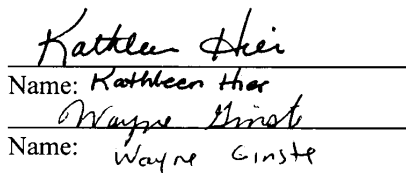 Kathleen Hier
Name: Kathleen Hier
Wayne Ginste
Name: Wayne Ginste